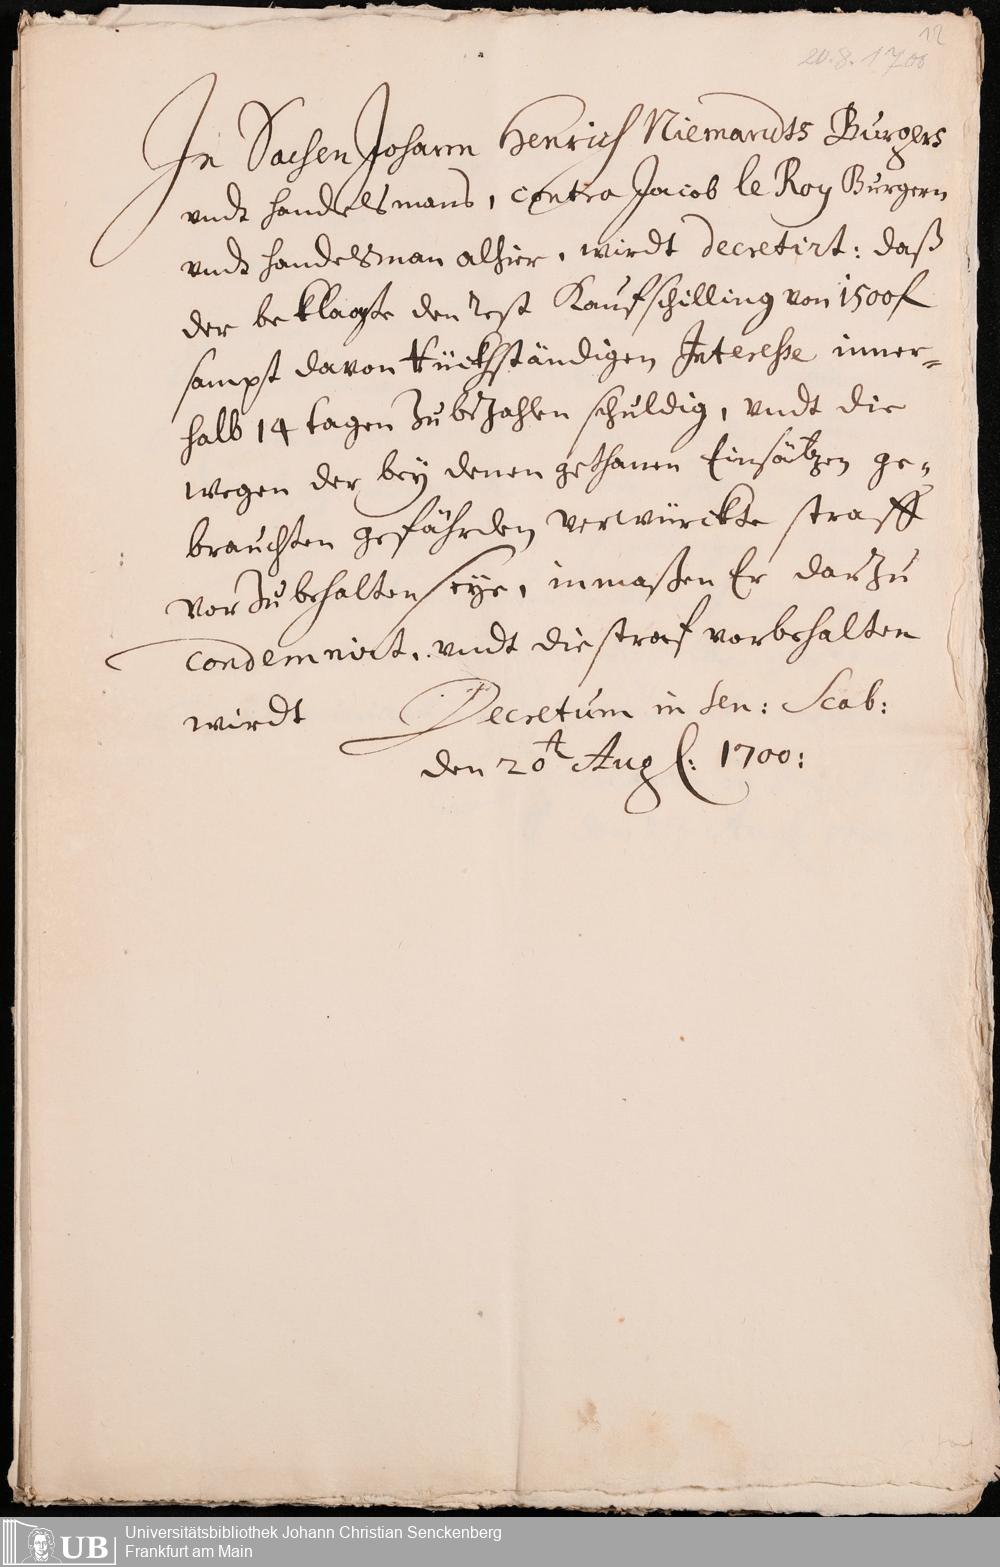 12
20.8.1700
In Sachen Johann Henrich Niemandts Burgers
undt handelsmans, contra Jacob le Roy Burgern
undt handelsman alhier, wirdt decretirt: daß
der beklagte den Rest Kaufschilling von 1500 f
sampt davon Rückständigen Interesse inner=
halb 14 tagen Zu bezahlen schuldig, undt die
wegen der bey denen gethanen Einsätzen ge=
brauchten gefährden verwürckte straff
vor Zu behalten seye, inmaßen Er darzu
condemnirt, undt die straf vorbehalten
wirdt Decretum in Sen: Scab:
den 20t Aug: 1700:
UB Universitätsbibliothek Johann Christian Senckenberg
Frankfurt am Main